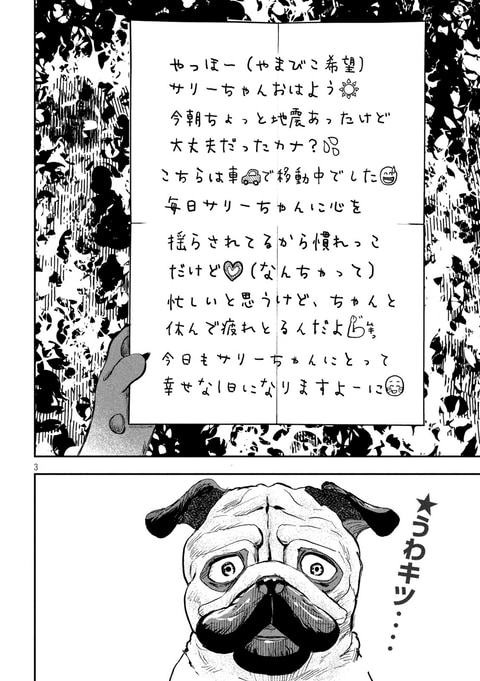 やっほー(やまびこ希望)
サリーちゃんおはよう☀
今朝ちょっと地震あったけど
大丈夫だったカナ?💦
こちらは車🚗で移動中でした😅
毎日サリーちゃんに心を
揺らされてるから慣れっこ
だけど♡(なんちゃって)
忙しいと思うけど、ちゃんと
休んで疲れとるんだよ💪
今日もサリーちゃんにとって
幸せな1日になりますよーに😊
3
★うわキツ‥‥